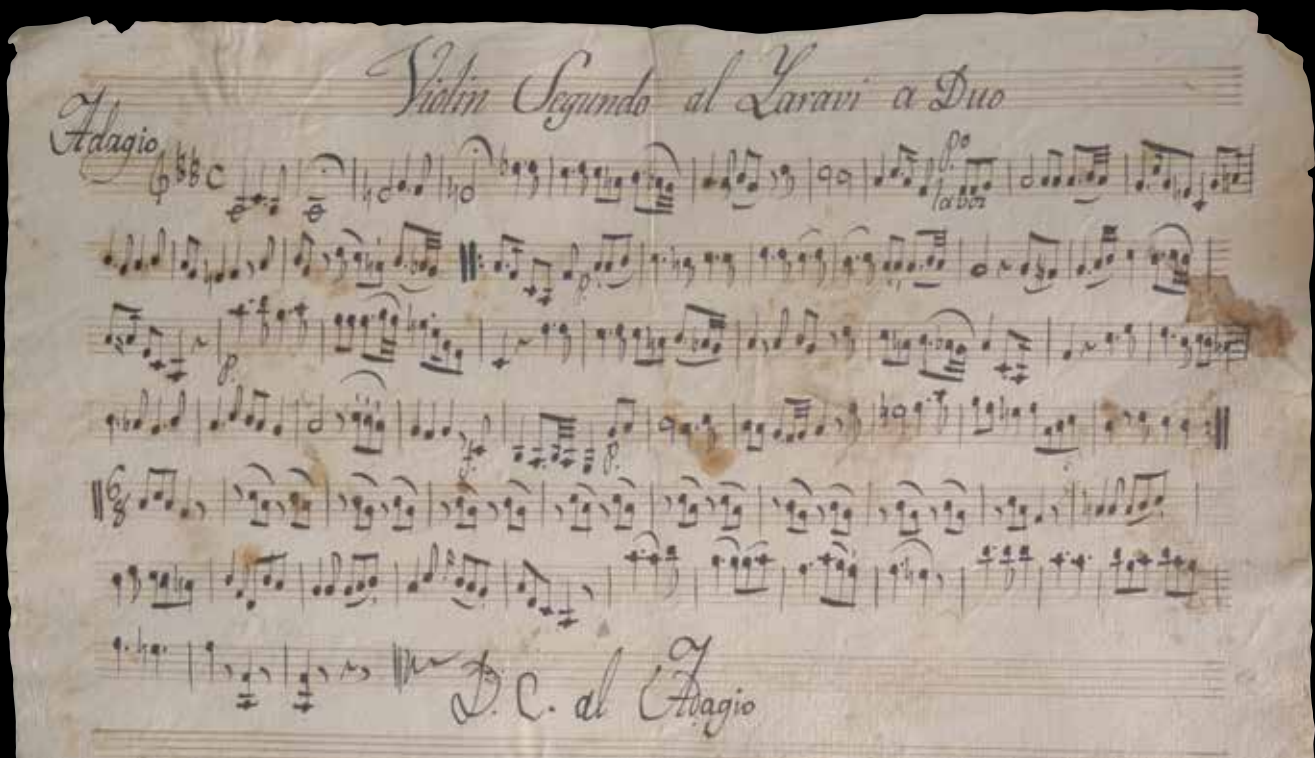 Violin Segundo al Yaravi a Duo
Adagio
C
p.º
la voz
p.
p.
p.
6/8
D. C. al Adagio